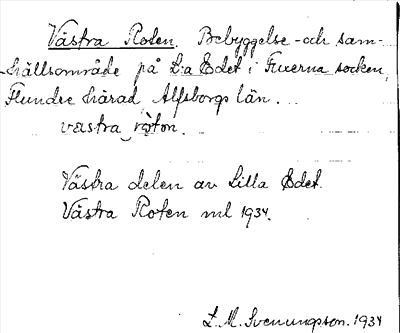 Västra Roten. Bebyggelse- och sam-
hällsområde på L:a Edet i Fuxerna socken,
Flundre härad, Älfsborgs län.
västra ro̱ton.
Västra delen av Lilla Edet.
Västra Roten ml 1934.
L. M. Svenungson. 1934